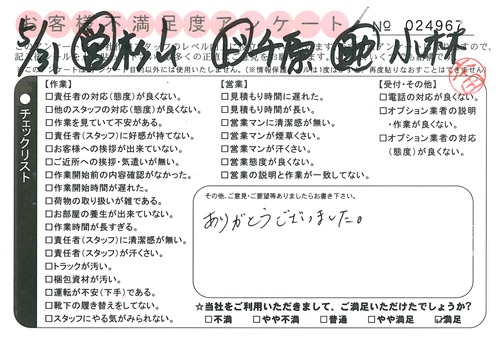 お客様不満足度アンケート
№ 024967
5/31 杉山 千原 小林
チェックリスト
【作業】
□責任者の対応(態度)が良くない。
□他のスタッフの対応(態度)が良くない。
□作業を見ていて不安がある。
□責任者(スタッフ)に好感が持てない。
□お客様への挨拶が出来ていない。
□ご近所への挨拶・気遣いが無い。
□作業開始前の内容確認がなかった。
□作業開始時間が遅れた。
□荷物の取り扱いが雑である。
□お部屋の養生が出来ていない。
□作業時間が長すぎる。
□責任者(スタッフ)に清潔感が無い。
□責任者(スタッフ)が汗くさい。
□トラックが汚い。
□梱包資材が汚い。
□運転が不安(下手)である。
□靴下の履き替えをしてない。
□スタッフにやる気がみられない。
【営業】
□見積もり時間に遅れた。
□見積もり時間が長い。
□営業マンに清潔感が無い。
□営業マンが煙草くさい。
□営業マンが汗くさい。
□営業態度が良くない。
□営業の説明と作業が一致してない。
【受付・その他】
□電話の対応が良くない。
□オプション業者の説明
・作業が良くない。
□オプション業者の対応
(態度)が良くない。
その他、ご意見・ご要望等ありましたらお書き下さい。
ありがとうございました。
★当社をご利用いただきまして、ご満足いただけたでしょうか?
□不満 □やや不満 □普通 □やや満足 ☑満足